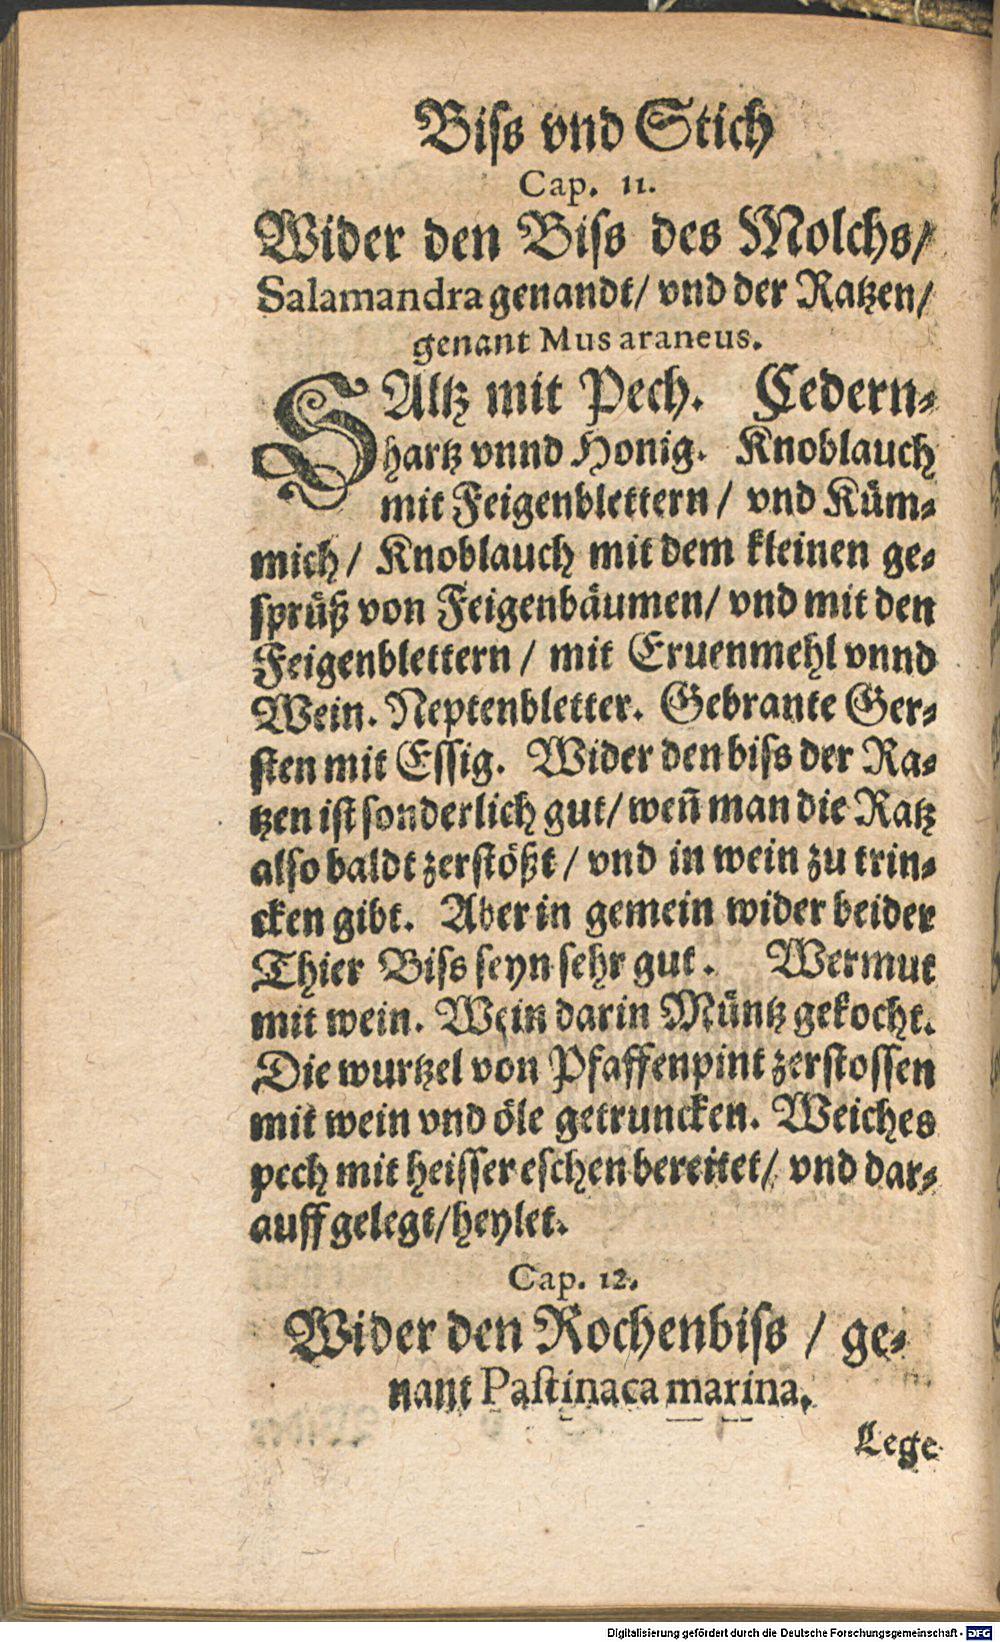 Biſs vnd Stich
Cap. 11.
Wider den Biſs des Molchs/
Salamandra genandt/ vnd der Ratzen/
genant Mus araneus.
SAltz mit Pech. Cedern⸗
hartz vnnd Honig. Knoblauch
mit Feigenblettern / vnd Küm⸗
mich/ Knoblauch mit dem kleinen ge⸗
ſprüß von Feigenbäumen/ vnd mit den
Feigenblettern / mit Eruenmehl vnnd
Wein. Neptenbletter. Gebrante Ger⸗
ſten mit Eſſig. Wider den biſs der Ra⸗
tzen iſt ſonderlich gut/ weñ man die Ratz
alſo baldt zerſtößt / vnd in wein zu trin⸗
cken gibt. Aber in gemein wider beider
Thier Biſs ſeyn ſehr gut. Wermut
mit wein. Wein darin Müntz gekocht.
Die wurtzel von Pfaffenpint zerſtoſſen
mit wein vnd öle getruncken. Weiches
pech mit heiſſer eſchen bereitet/ vnd dar⸗
auff gelegt/ heylet.
Cap. 12.
Wider den Rochenbiſs / ge⸗
nant Paſtinaca marina.
Lege
Digitalisierung gefördert durch die Deutsche Forschungsgemeinschaft - DFG